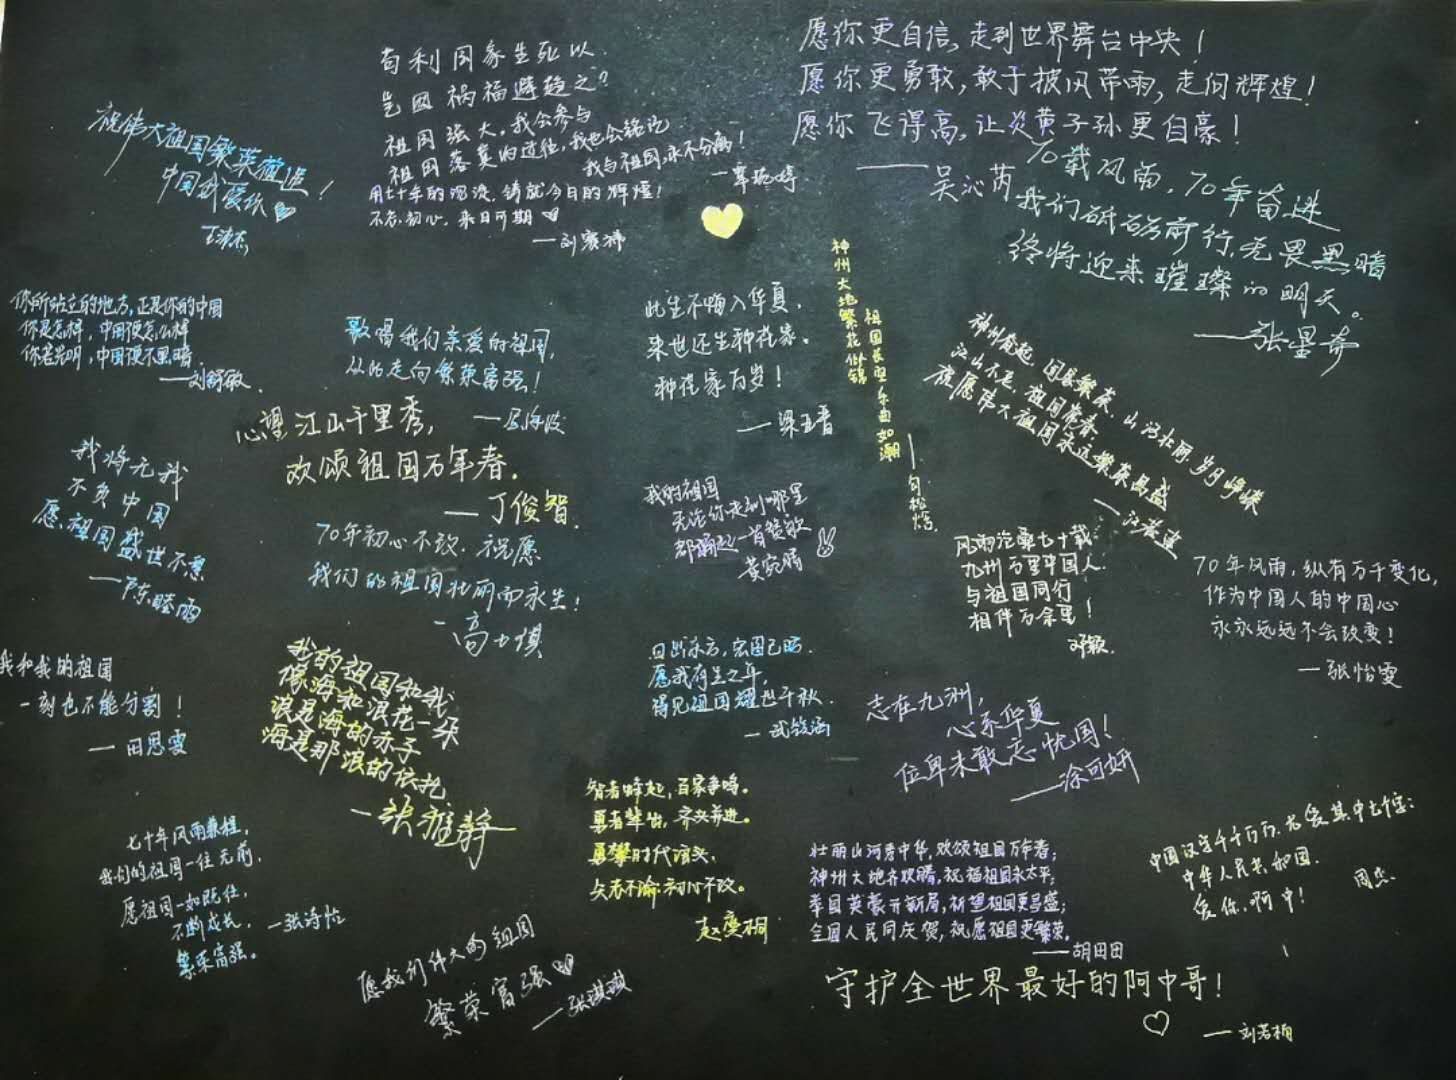 祝伟大祖国繁荣
中国我爱你
苟利国家生死以
岂因祸福避趋之?
祖国强大,我会参与
祖国落寞的过往,我也会铭记
我与祖国,永不分离!
用七十年的沉淀,铸就今日的辉煌!
不忘初心,来日可期
愿你更自信,走到世界舞台中央!
愿你更勇敢,敢于披风带雨,走向辉煌!
愿你飞得高,让炎黄子孙更自豪!
——吴沁芮
70载风雨,70年奋进
我们砥砺前行,无畏黑暗
终将迎来璀璨的明天。
——张星奇
你所站立的地方,正是你的中国
你是怎样,中国便怎么样
你若光明,中国便不黑暗
——刘舒敏
歌唱我们亲爱的祖国,
从此走向繁荣富强!
此生不悔入华夏,
来世还生种花家。
种花家万岁!
神州大地繁花似锦
祖国长空乐曲如潮
神州奋起,国县繁荣,山河壮丽,岁月峥嵘
江山不老,祖国常春,
祝愿伟大祖国永远繁荣昌盛
心望江山千里秀,
欢颂祖国万年春。
——丁俊智
我将无我
不负中国
愿祖国盛世不衰
70年初心不改,祝愿
我们的祖国壮丽而永生!
我的祖国
无论你走到哪里
都诵起一首赞歌
黄宛晴
风雨沧桑七十载
九州万里中国人
与祖国同行
相伴万余里!
邓颖
70年风雨,纵有万千变化,
作为中国人的中国心
永永远远不会改变!
—张怡雯
我和我的祖国
一刻也不能分割!
—田思雯
我的祖国和我
像海和浪花一朵
浪是海的赤子
海是那浪的依托
—张雅静
日出东方,宏图已昭
愿我有生之年,
得见祖国耀世千秋
志在九洲,
心系华夏
位卑未敢忘忧国!
——涂可妍
七十年风雨兼程,
我们的祖国一往无前,
愿祖国一如既往,
不断成长,
繁荣富强。
—张诗怡
智者蜂起,百家争鸣。
勇者辈出,齐头并进。
勇攀时代浪头,
矢志不渝,初心不改。
壮丽山河秀中华,欢颂祖国万年春;
神州大地齐欢腾,祝福祖国永太平;
举国英豪开新局,祈望祖国更昌盛;
全国人民同庆贺,祝愿祖国更繁荣。
——胡田田
中国汉字千千万万,尤爱其中七个字:
中华人民共和国.
爱你,啊中!
周杰
愿我们伟大的祖国
繁荣富强
—张淇淇
守护全世界最好的阿中哥!
—刘若桐